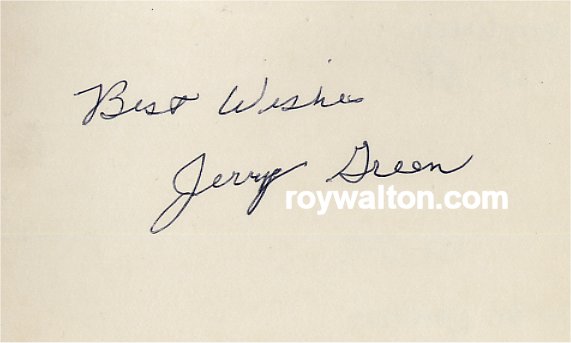 Best Wishes
Jerry Green
roywalton.com